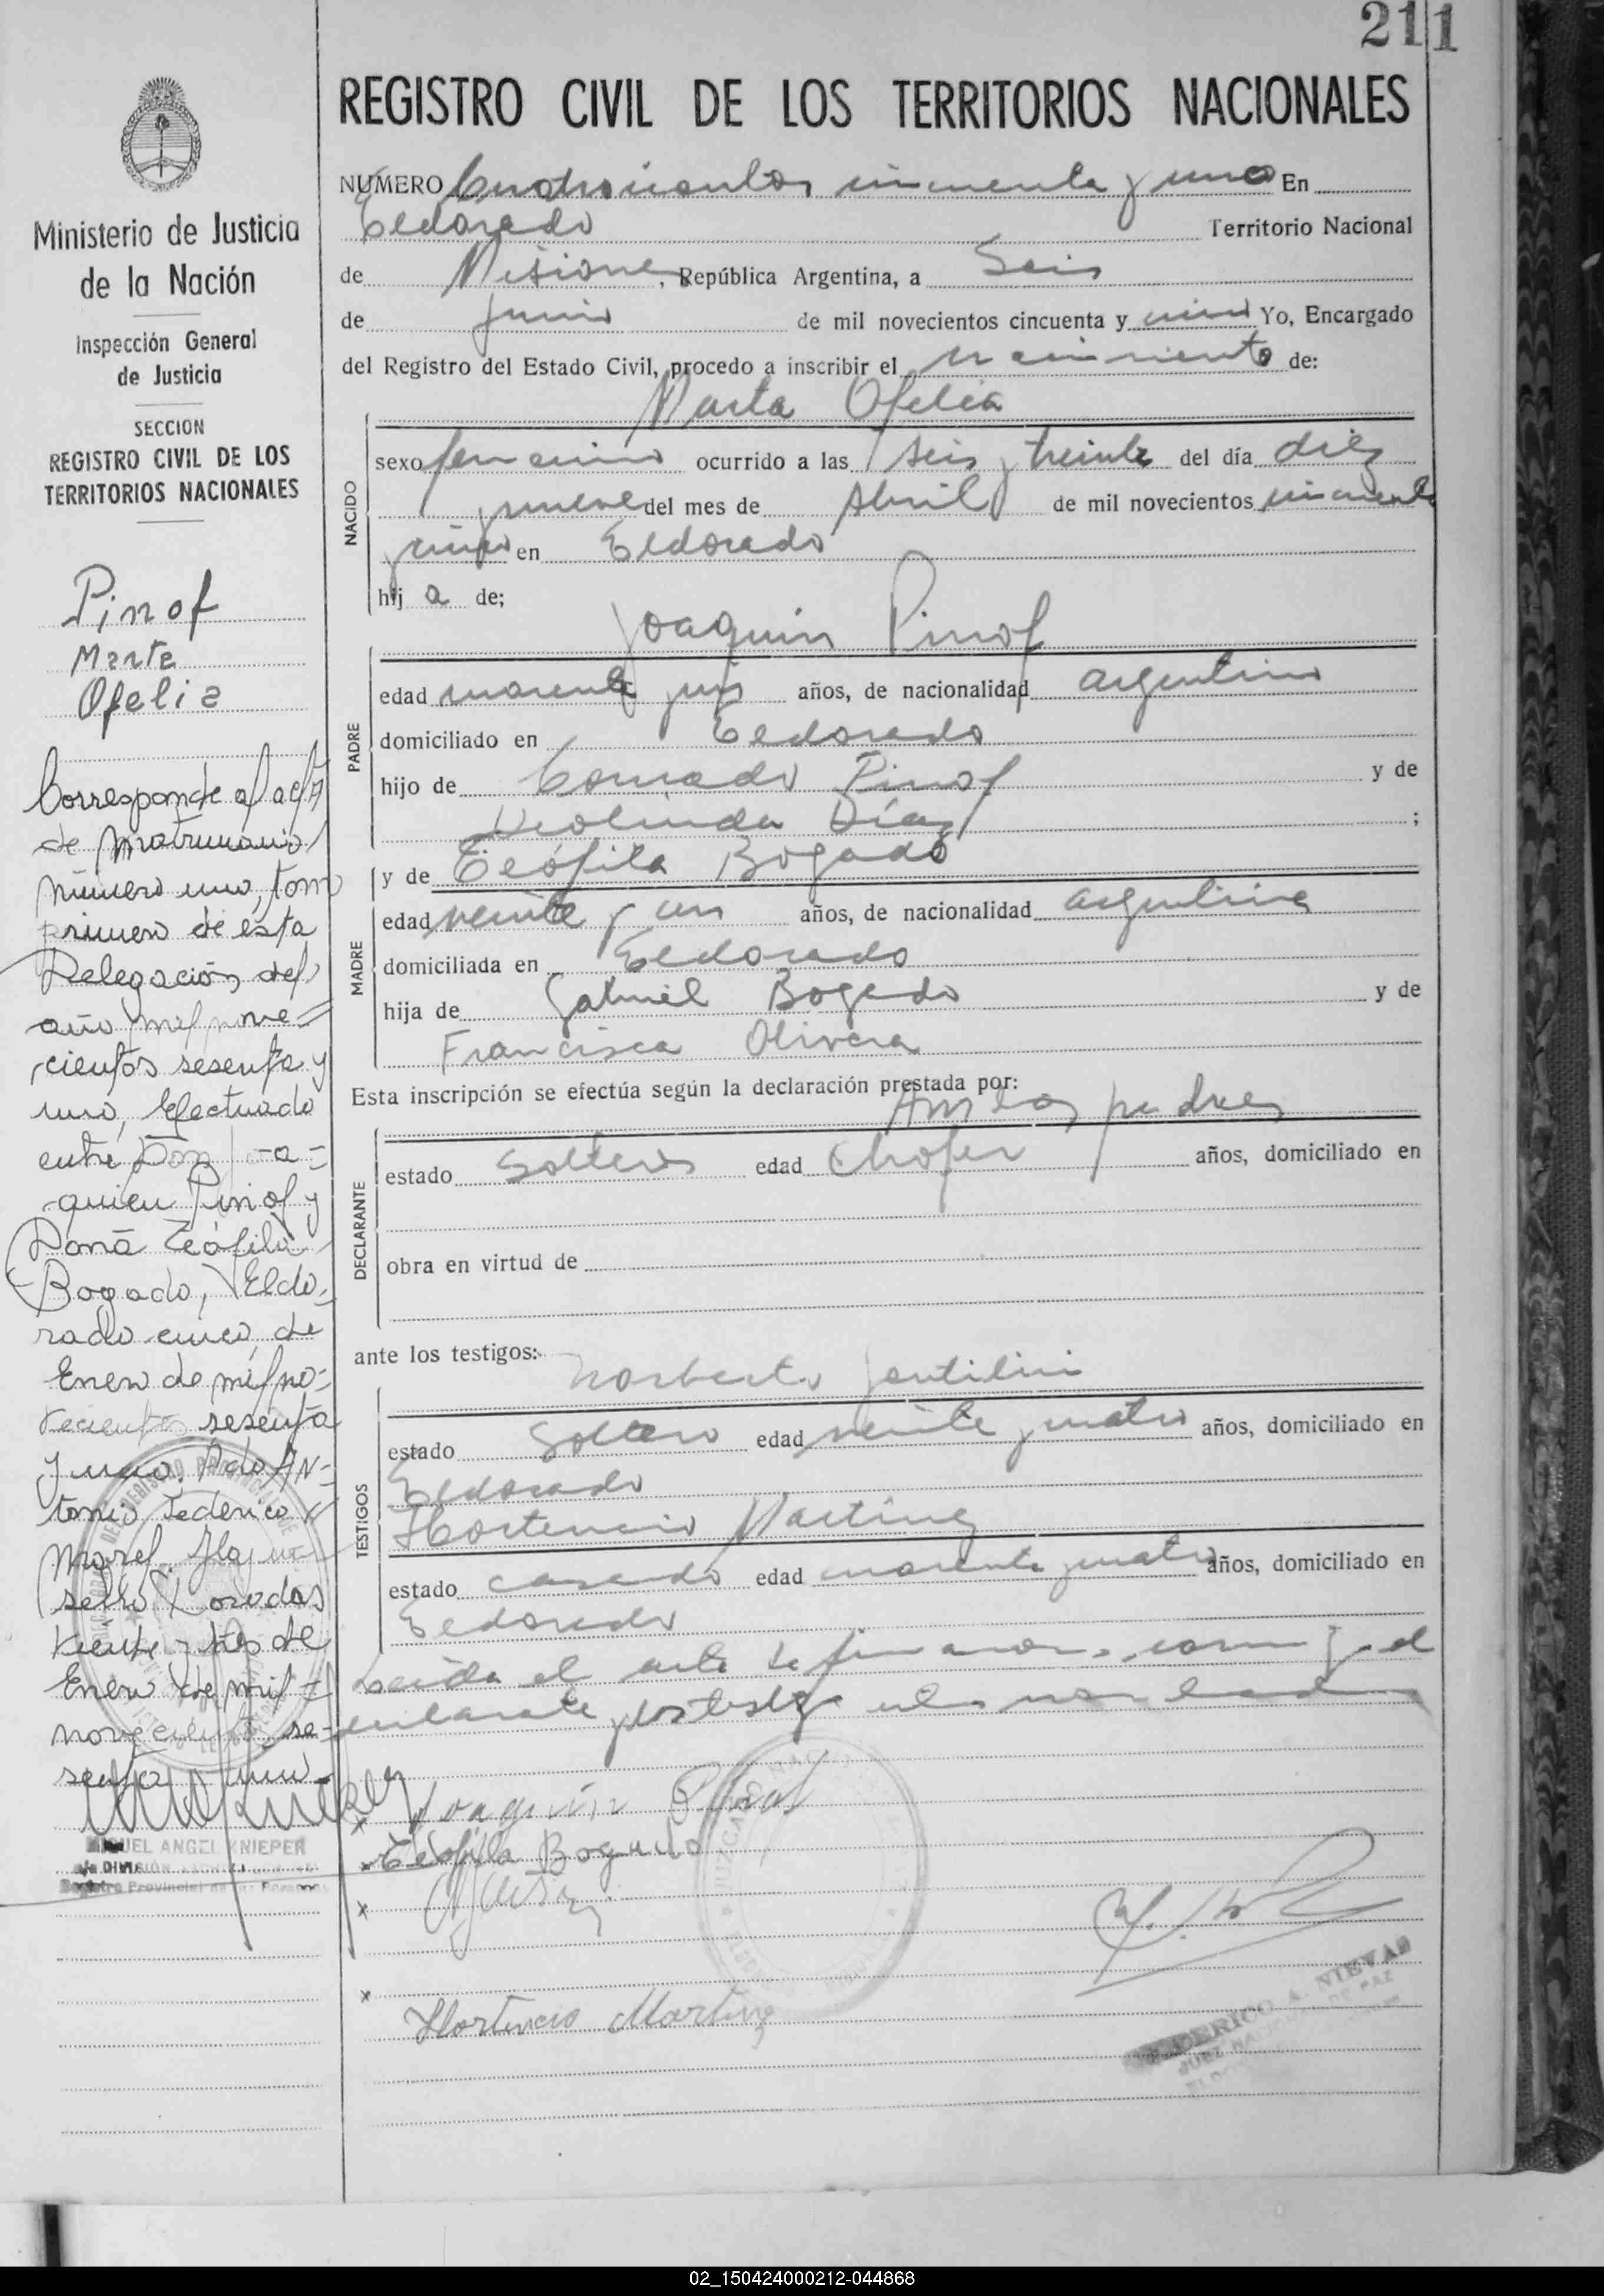 211
REGISTRO CIVIL DE LOS TERRITORIOS NACIONALES
NUMERO Cuatrocientos cincuenta y uno En
Eldorado Territorio Nacional
de Misiones, República Argentina, a Seis
de Junio de mil novecientos cincuenta y cinco Yo, Encargado
del Registro del Estado Civil, procedo a inscribir el nacimiento de:
Marta Ofelia
NACIDO
sexo femenino ocurrido a las seis y treinta del día diez
y nueve del mes de Abril de mil novecientos cincuenta
y cinco en Eldorado
hij a de;
Joaquin Pinof
PADRE
edad cuarenta y un años, de nacionalidad argentino
domiciliado en Eldorado
hijo de Conrado Pinof y de
Deolinda Díaz ;
y de Teófila Bogado
MADRE
edad veinte y un años, de nacionalidad argentina
domiciliada en Eldorado
hija de Gabriel Bogado y de
Francisca Olivera
Esta inscripción se efectúa según la declaración prestada por:
Ambos padres
DECLARANTE
estado Solteros edad Chofer años, domiciliado en
obra en virtud de
ante los testigos:
Norberto Jentilini
TESTIGOS
estado Soltero edad veinte y cuatro años, domiciliado en
Eldorado
Hortencio Martinez
estado casado edad cuarenta y cuatro años, domiciliado en
Eldorado
Leida el acta la firmaron conmigo el
declarante y los testigos
Joaquin Pinof
Teófila Bogado
Hortencio Martinez
FEDERICO A. NIEVAS
JUEZ DE PAZ
Ministerio de Justicia
de la Nación
Inspección General
de Justicia
SECCION
REGISTRO CIVIL DE LOS
TERRITORIOS NACIONALES
Pinof
Marta
Ofelia
Corresponde al acta
de Matrimonio
número uno, tomo
primero de esta
Delegación, del
año mil nove=
cientos sesenta y
uno, Efectuado
entre Don Joa=
quien Pinof y
Doña Teófila
Bogado, Eldo-
rado cinco de
Enero de mil no-
vecientos sesenta
y uno. Fdo An-
tonio Federico
Morel. Hay un
sello. Posadas
veinte y tres de
Enero de mil
novecientos se-
senta y uno-
MIGUEL ANGEL KNIEPER
a/c DIVISIÓN
Registro Provincial de las Personas
02_150424000212-044868